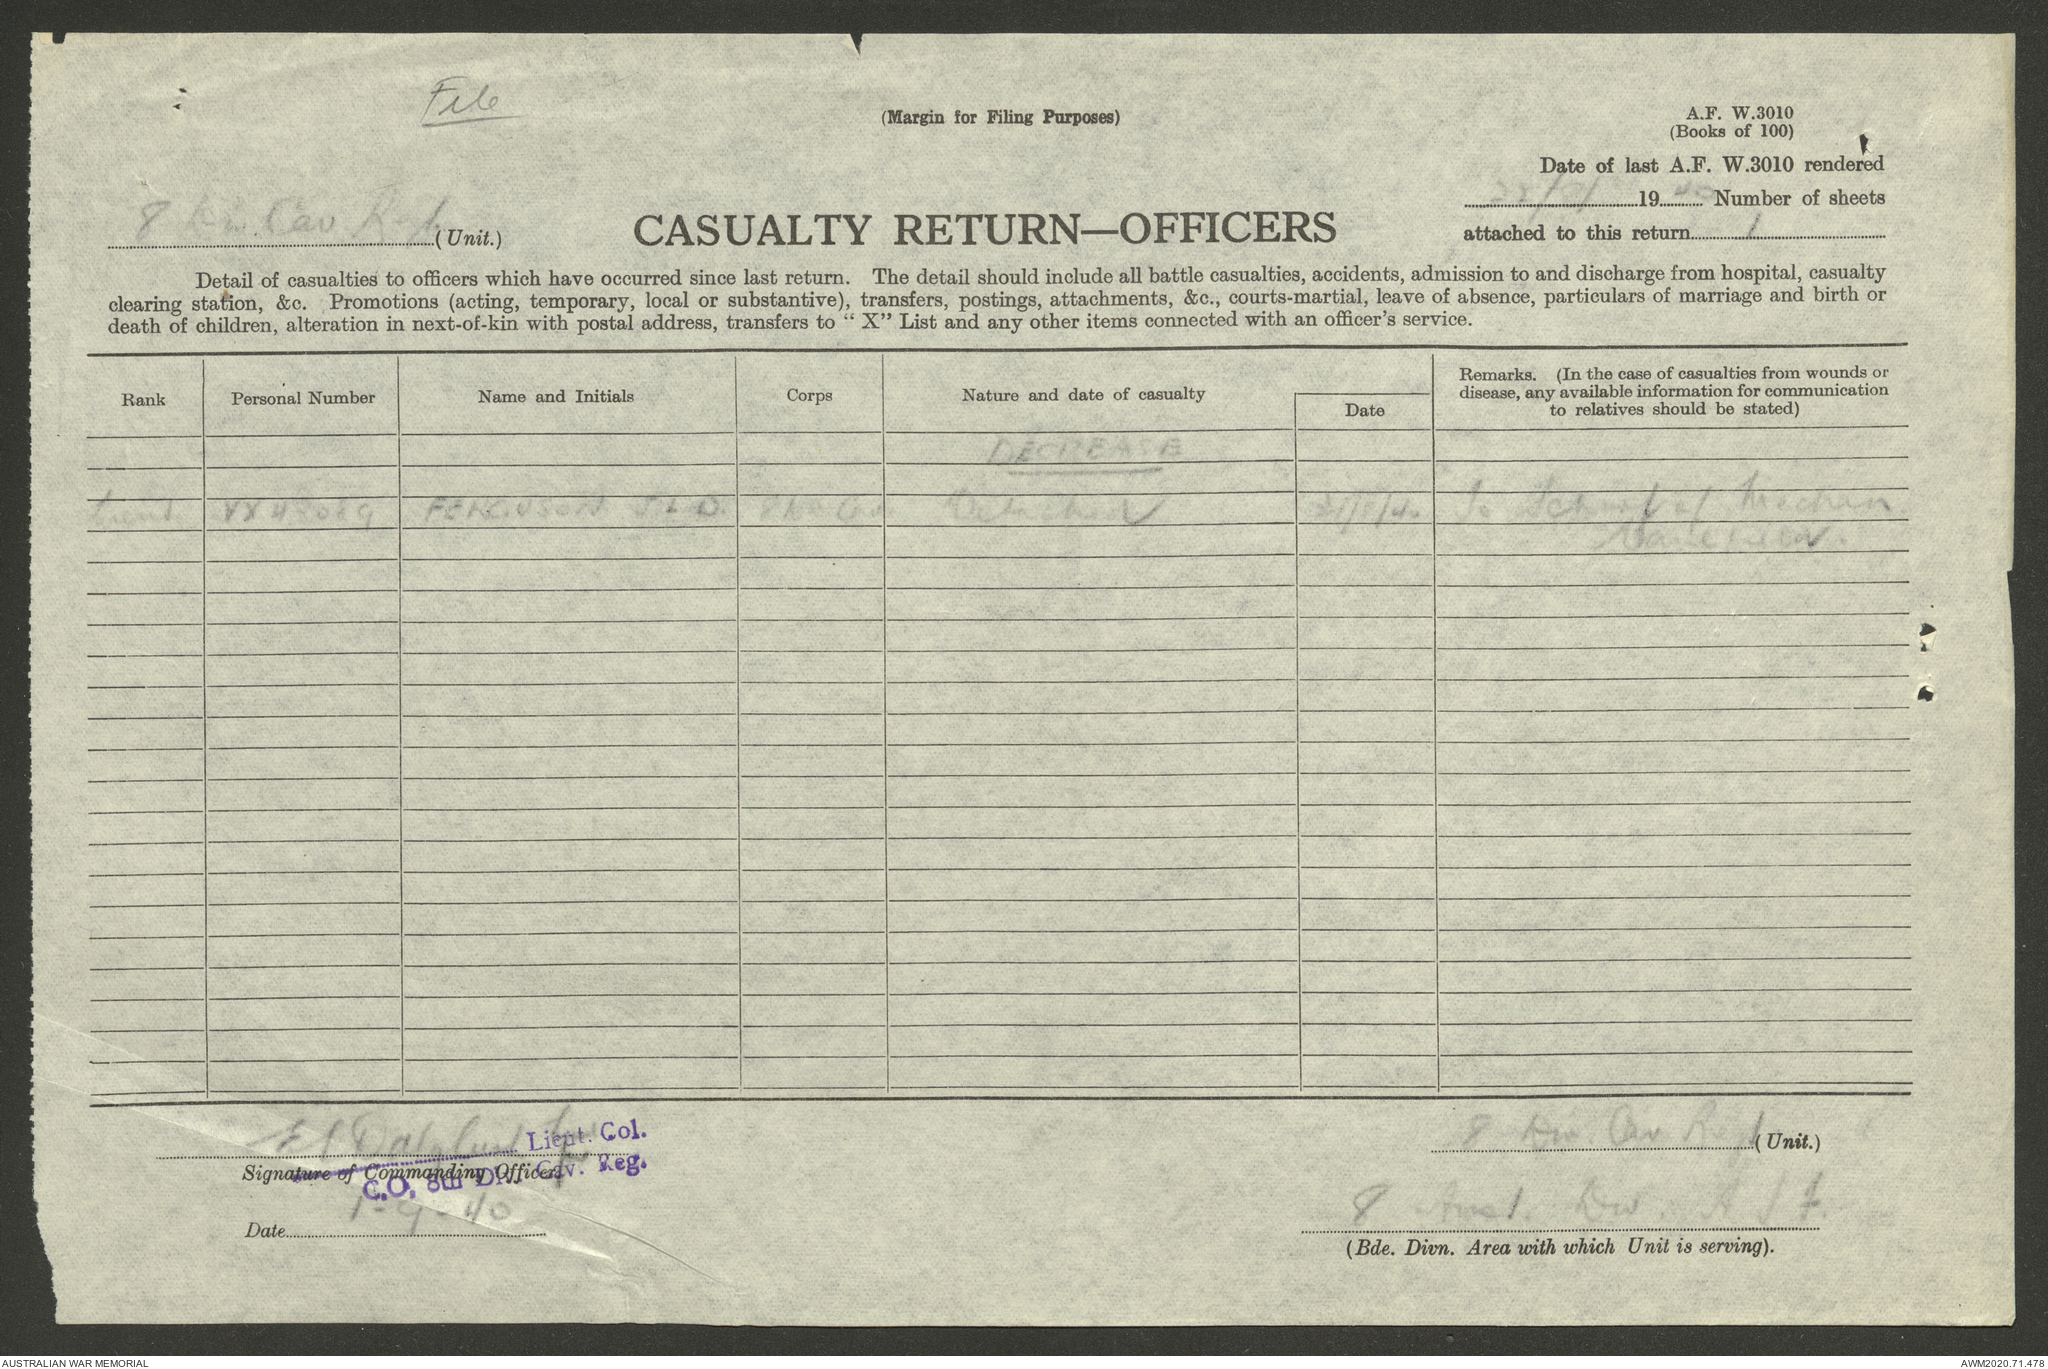 File
(Margin for Filing Purposes)
A.F. W.3010
(Books of 100)
Date of last A.F. W.3010 rendered
19 40 Number of sheets
attached to this return 1
8 Div Cav Regt (Unit.)
CASUALTY RETURN—OFFICERS
Detail of casualties to officers which have occurred since last return. The detail should include all battle casualties, accidents, admission to and discharge from hospital, casualty
clearing station, &c. Promotions (acting, temporary, local or substantive), transfers, postings, attachments, &c., courts-martial, leave of absence, particulars of marriage and birth or
death of children, alteration in next-of-kin with postal address, transfers to “ X” List and any other items connected with an officer's service.
Rank Personal Number Name and Initials Corps Nature and date of casualty Date Remarks. (In the case of casualties from wounds or
disease, any available information for communication
to relatives should be stated)
DECREASE
Lieut FERGUSON Detached 31/8/40 To School of Mechan
Lieut. Col.
Signature of Commanding Officer
C.O. 8th Div. Cav. Reg.
Date 1-9-40
8 Div. Cav Regt (Unit.)
8 Aust. Div. A I F.
(Bde. Divn. Area with which Unit is serving).
AUSTRALIAN WAR MEMORIAL
AWM2020.71.478